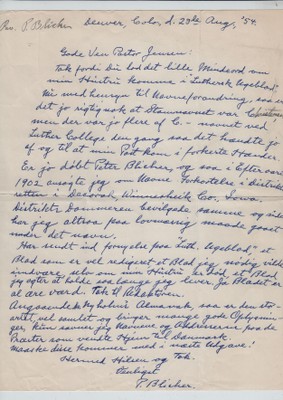 Rev. P. Blicher Denver, Colo, d. 29de Aug, '54.
Gode Ven Pastor Jensen:
Tak fordi Du lod det lille Mindeord om
min Hustru komme i "Luthersk Ugeblad".
Nu med hensyn til Navneforandring, saa er
det jo rigtig nok at Stamnavnet var
men der var jo flere af C. - navnet ved
Luther College den gang saa det hændte jo
af og til at min Post kom i forkerte Hænder.
Er jo døbt Peter Blicher, og saa i Efteraaret
1902 ansøgte jeg om Navne Forkortelse i Distrikts
retten i Decorah, Winnesheik Co, Iowa.
Distrikts Dommeren bevilgede samme og siden
har jeg altsaa paa lovmæssig maade gaaet
under det navn.
Har sendt ind fornyelse paa Luth. Ugeblad," et
Blad som er vel redigeret et Blad jeg nødig vilde
undvære, selv om min Hustru er død, et Blad
jeg agter at holde saa længe jeg lever. Ja Bladet er
al ære værd. Tak til Redaktøren.
Angaaende Kyholms Almenak, saa er den
vel samlet og bringer mange gode Oplysnin-
ger, kun savner jeg Navnene og Addresserne paa de
Præster som vendte Hjem til Danmark.
Maaske disse kommer med i næste Udgave!
Hermed Hilsen og Tak.
Venligst
P. Blicher.